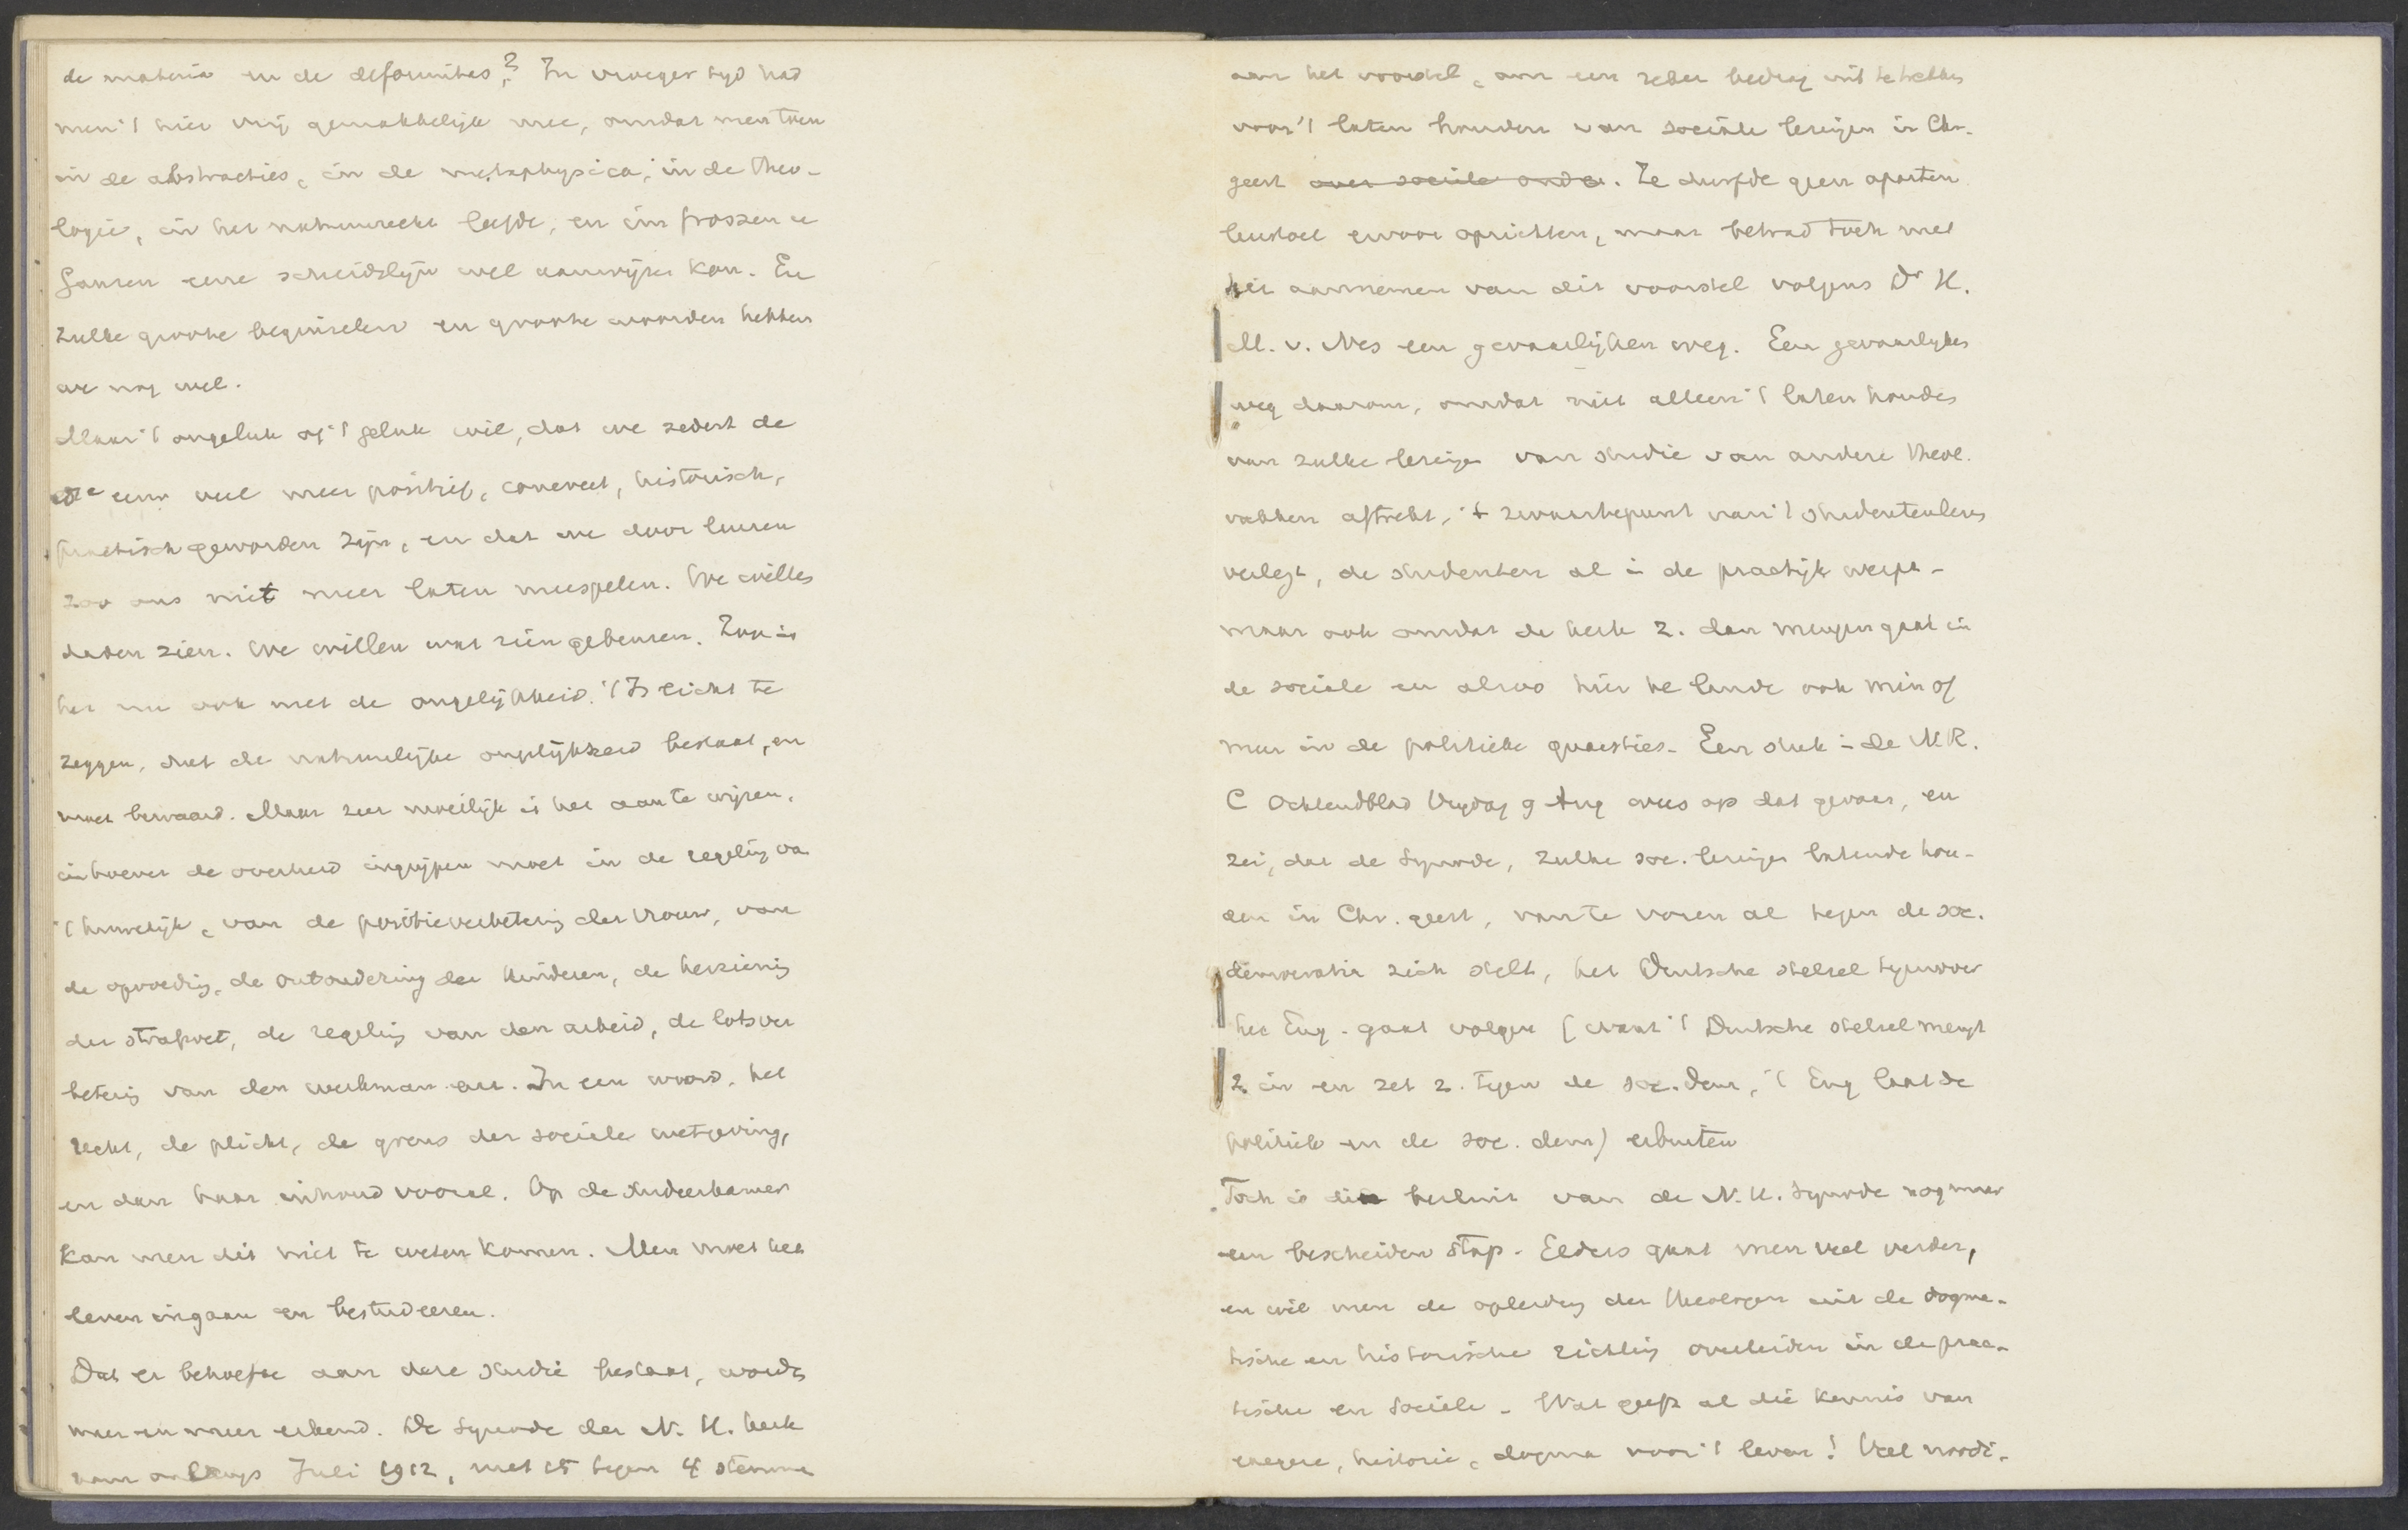 de materia en de deformitas? In vroeger tyd had
men 't hier vrij gemakkelijk mee, omdat men toen
in de abstracties, in de metaphysica, in de theo-
logie, in het natuurrecht leefde, en im grossen u
Ganzen eene scheidslijn wel aanwijzen kon. En
zulke groote beginselen en groote woorden hebben
we nog wel.
Maar 't ongeluk of 't geluk wil, dat we sedert de
eeuw veel meer positief, concreet, historisch,
practisch geworden zijn, en dat we door leuzen
zoo ons niet meer laten meespelen. We willen
daden zien. We willen wat zien gebeuren. Zoo is
het nu ook met de ongelijkheid. 't Is licht te
zeggen, dat de natuurlijke ongelijkheid bestaat, en
moet bewaard. Maar zeer moeilijk is het aan te wijzen,
inhoever de overheid ingrijpen moet in de regeling va
't huwelijk, van de positieverbetering der vrouw, van
de opvoeding, de ontoudering der kinderen, de herziening
der strafwet, de regeling van den arbeid, de lotsver
betering van den werkman enz. In een woord, het
recht, de plicht, de grens der sociale wetgeving,
en dan haar inhoud vooral. Op de studeerkamer
kan men dit niet te weten komen. Men moet het
leven ingaan en bestudeeren.
Dat er behoefte aan deze studie bestaat, wordt
meer en meer erkend. De Synode der N. H. kerk
nam onlangs Juli 1912, met 15 tegen 4 stemmen
aan het voorstel, om een zeker bedrag uit te trekken
voor 't laten houden van sociale lezingen in Chr.
geest over sociale onder. Ze durfde geen aparten
leerstoel ervoor oprichten, maar betrad toch met
het aannemen van dit voorstel volgens Dr H.
M. v. Nes een gevaarlijken weg. Een gevaarlyken
weg daarom, omdat niet alleen 't laten houden
van zulke lezingen van studie van andere theol.
vakken aftrekt, 't zwaartepunt van 't studentenleven
verlegt, de studenten al in de practijk werpt -
maar ook omdat de kerk z. dan mengen gaat in
de sociale en alzoo hier te lande ook min of
meer in de politieke quaesties. Een stuk in de N.R.
C Ochtendblad Vrydag 9 Aug wees op dat gevaar, en
zei, dat de Synode, zulke soc. lezingen latende hou-
den in Chr. geest, van te voren al tegen de soc.
democratie zich stelt, het Duitsche stelsel tegenover
het Eng. gaat volgen (want 't Duitsche stelsel mengt
z. in en zet z. tegen de soc. dem, 't Eng laat de
politiek en de soc. dem) erbuiten
Toch is die besluit van de N. H. Synode nog maar
een bescheiden stap. Elders gaat men veel verder,
en wil men de opleiding der theologen uit de dogma-
tische en historische richting overleiden in de prac-
tische en sociale. Wat geeft al die kennis van
exegese, historie, dogma voor 't leven! Veel noodi-